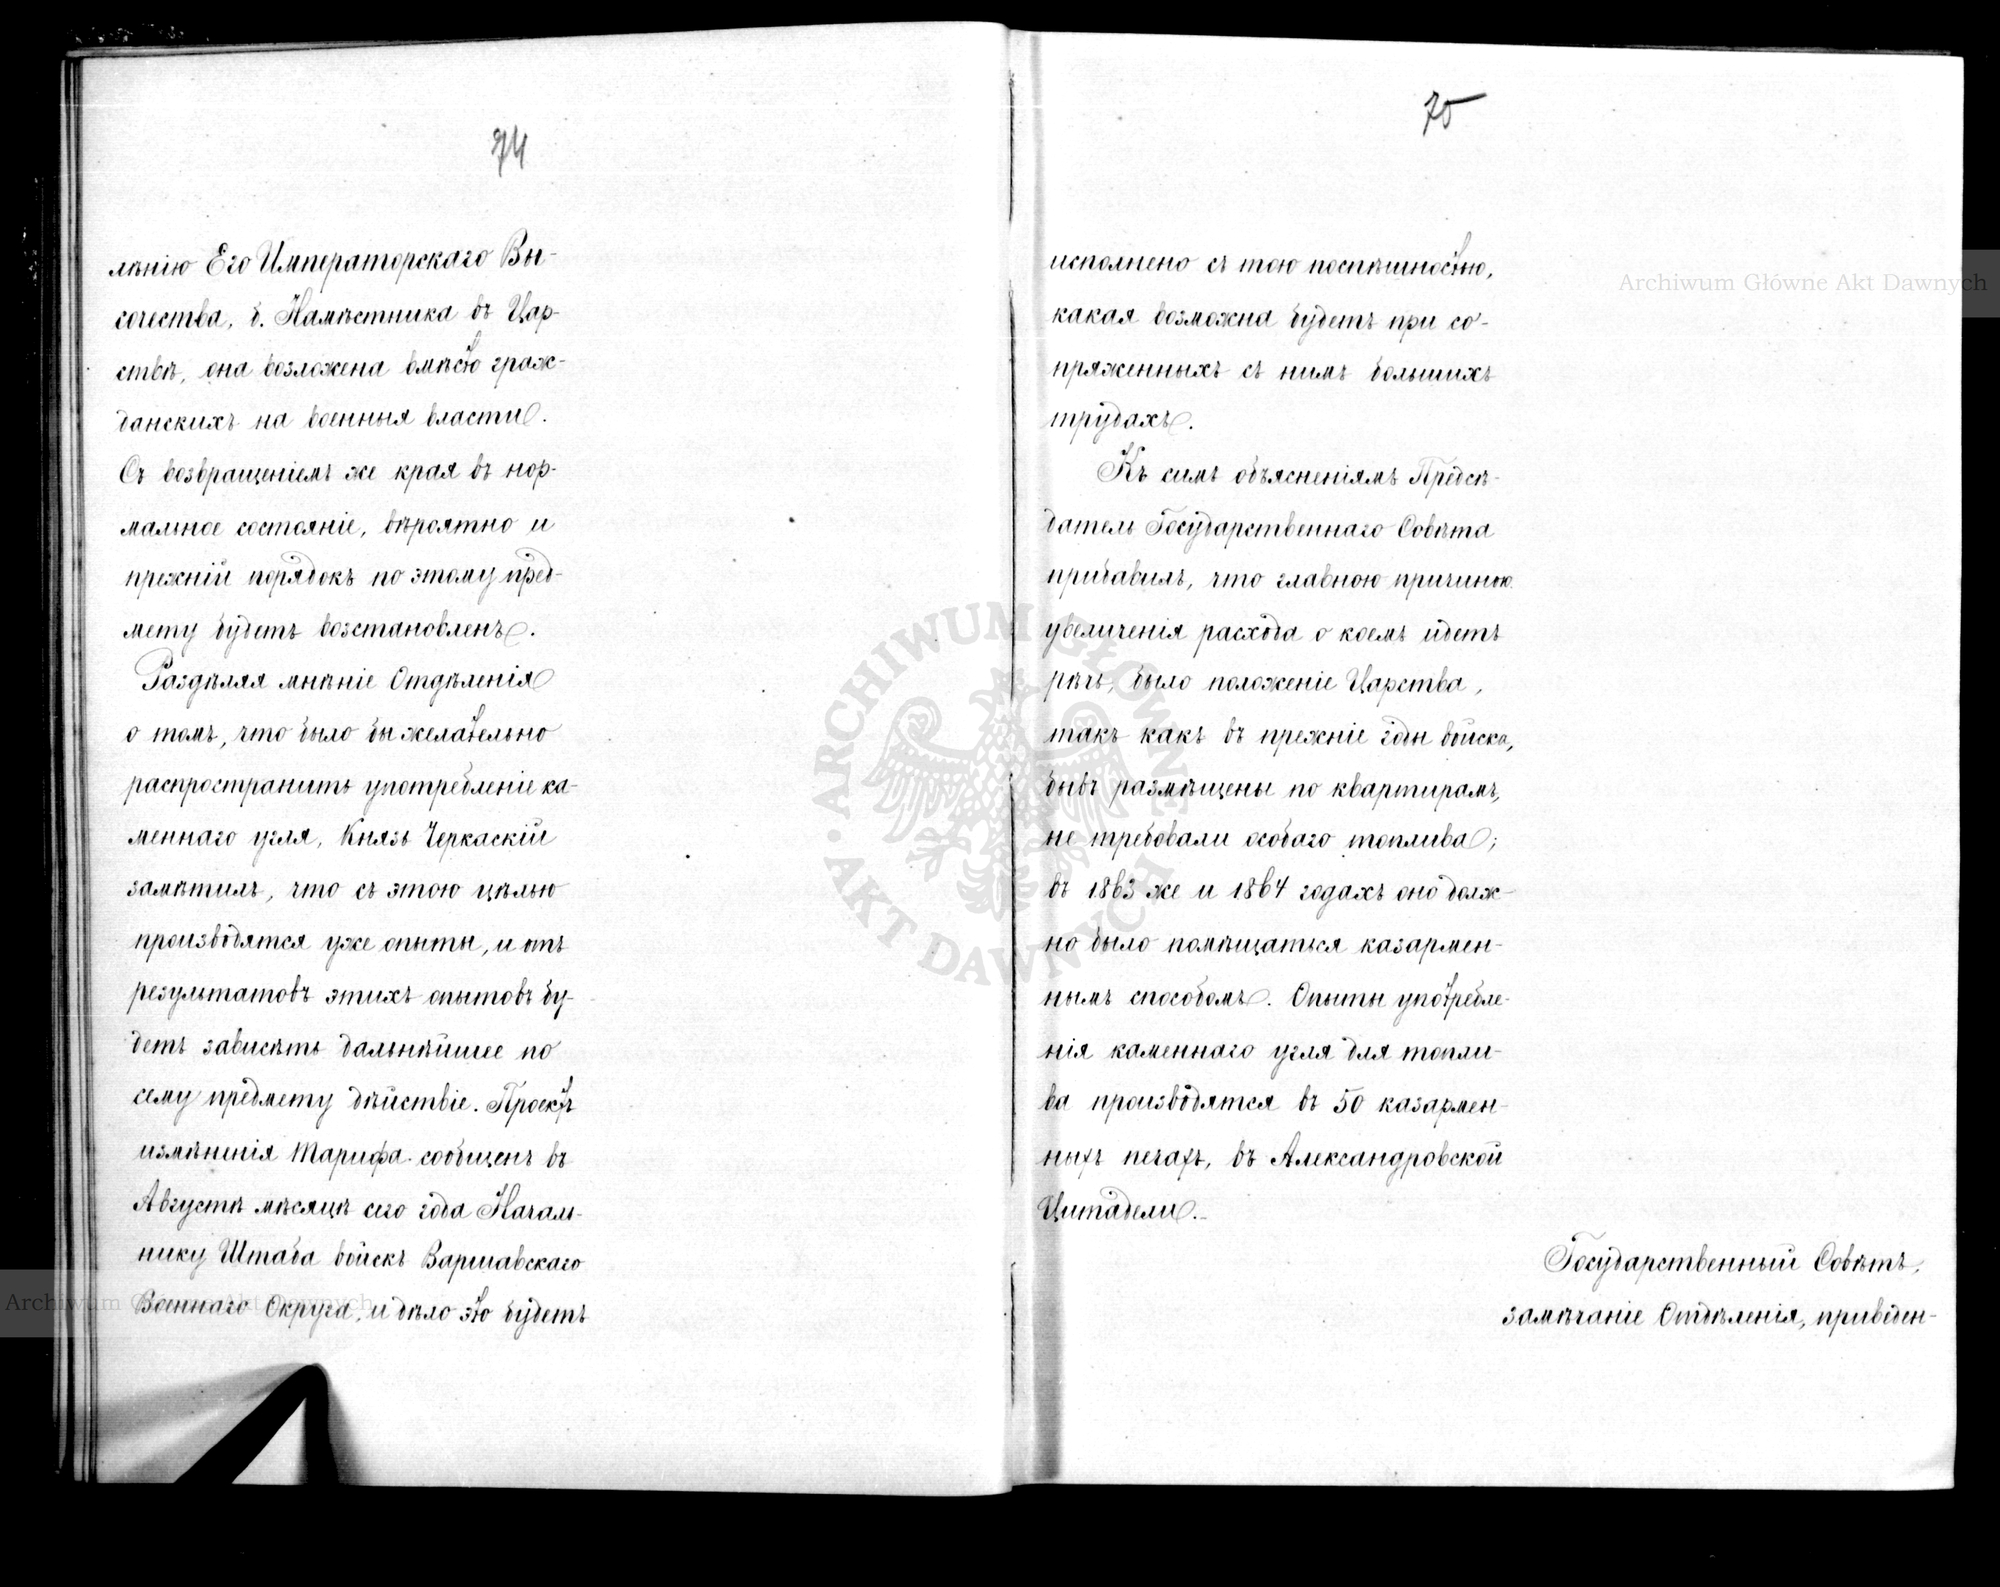 74
лѣнію Его Императорскаго Вы-
сочества, б. Намѣстника въ Цар-
ствѣ, она возложена вмѣсто граж-
данскихъ на военныя власти.
Съ возвращеніемъ же края въ нор-
мальное состояніе, вѣроятно и
прежній порядокъ по этому пред-
мету будетъ возстановленъ.
Раздѣляя мнѣніе Отдѣленія
о томъ, что было бы желательно
распространить употребленіе ка-
меннаго угля, Князь Черкаскій
замѣтилъ, что съ этою цѣлью
производятся уже опыты, и отъ
результатовъ этихъ опытовъ бу-
детъ зависѣть дальнѣйшее по
сему предмету дѣйствіе. Проектъ
измѣненія Тарифа сообщенъ въ
Августѣ мѣсяцѣ сего года Началь-
нику Штаба войскъ Варшавскаго
Военнаго Округа, и дѣло это будетъ
75
исполнено съ тою поспѣшностью,
какая возможна будетъ при со-
пряженныхъ съ нимъ большихъ
трудахъ.
Къ симъ объясненіямъ Предсѣ-
датель Государственнаго Совѣта
прибавилъ, что главною причиною
увеличенія расхода о коемъ идетъ
рѣчь, было положеніе Царства,
такъ какъ въ прежніе годы войска,
бывъ размѣщены по квартирамъ,
не требовали особаго топлива;
въ 1863 же и 1864 годахъ оно долж-
но было помѣщаться казармен-
нымъ способомъ. Опыты употребле-
нія каменнаго угля для топли-
ва производятся въ 50 казармен-
ныхъ печахъ, въ Александровской
Цитадели.
Государственный Совѣтъ,
замѣчаніе Отдѣленія, приведен-
Archiwum Główne Akt Dawnych
Archiwum Główne Akt Dawnych
ARCHIWUM GŁÓWNE · AKT DAWNYCH